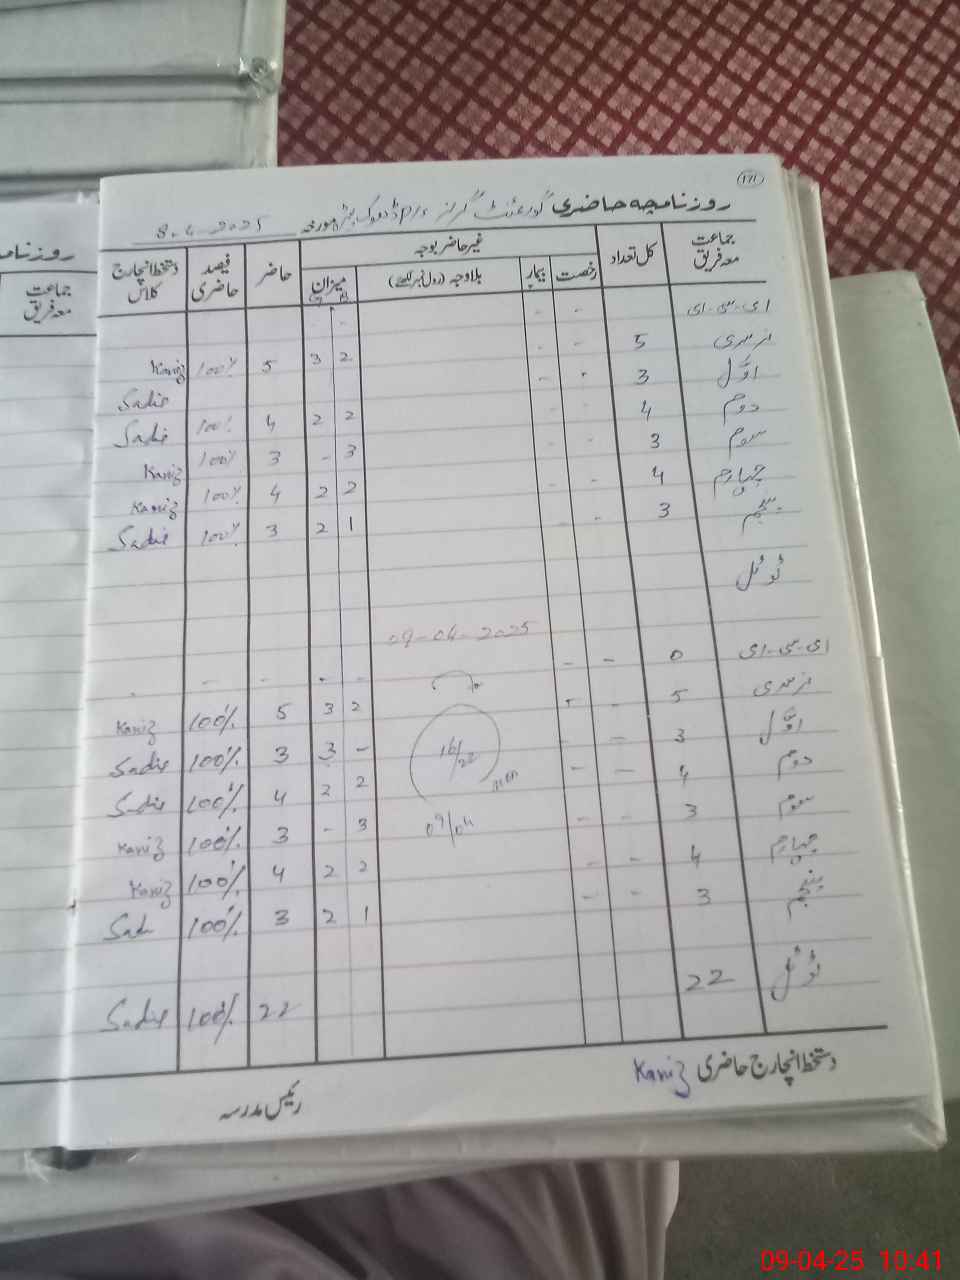 171
روزنامچہ حاضری گورنمنٹ گرلز P/S ڈھوک مورخہ 8-4-2025
جماعت معہ فریق کل تعداد غیر حاضر بوجہ حاضر فیصد حاضری دستخط انچارج کلاس
رخصت بیمار بلاوجہ (رول نمبر لکھیے) میزان B G
ای-سی-ای - - - -
نرسری 5 - - 2 3 5 100% Kaniz
اوّل 3 - - Sadie
دوم 4 - - 2 2 4 100% Sadie
سوم 3 - - 3 - 3 100% Kaniz
چہارم 4 - - 2 2 4 100% Kaniz
پنجم 3 - - 1 2 3 100% Sadie
ٹوٹل
09-04-2025
ای-سی-ای 0 - - - - - -
نرسری 5 - - 2 3 5 100% Kaniz
اوّل 3 - - - 3 3 100% Sadie
دوم 4 - - 2 2 4 100% Sadie
سوم 3 - - 3 - 3 100% Kaniz
چہارم 4 - - 2 2 4 100% Kaniz
پنجم 3 - - 1 2 3 100% Sadi
ٹوٹل 22 22 100% Sadie
16/22
09/04
دستخط انچارج حاضری Kaniz
رئیس مدرسہ
روزنامچہ
جماعت معہ فریق
09-04-25 10:41